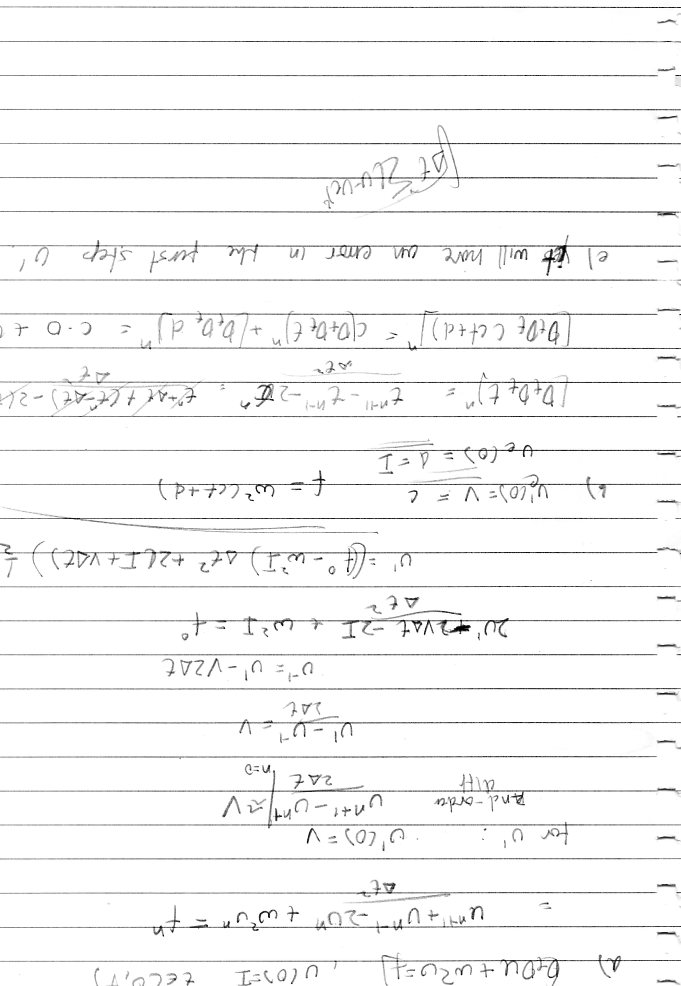 a) [DtDtu + ω²u = f] , u(0)=I t∈(0,T)
= (u^{n+1} + u^{n-1} - 2u^n)/Δt² + ω²u^n = f^n
for u' : u'(0) = V
2nd-order diff (u^{n+1} - u^{n-1})/2Δt |_{n=0} ≈ V
(u¹ - u⁻¹)/2Δt = V
u⁻¹ = u¹ - V2Δt
(2u¹ - 2VΔt - 2I)/Δt² + ω²I = f⁰
u¹ = ((f⁰ - ω²I) Δt² + 2(I + VΔt)) ½
b) u_e'(0) = V = c f = ω²(ct+d)
u_e(0) = d = I
[DtDt t]^n = (t^{n+1} - t^{n-1} - 2t^n)/Δt² = (t^n+Δt + (t^n-Δt) - 2(t/Δt²
[DtDt (ct+d)]^n = c[DtDt t]^n + [DtDt d]^n = c·0 +
e) it will have an error in the first step u¹.
√Δt Σ(u-ue)²